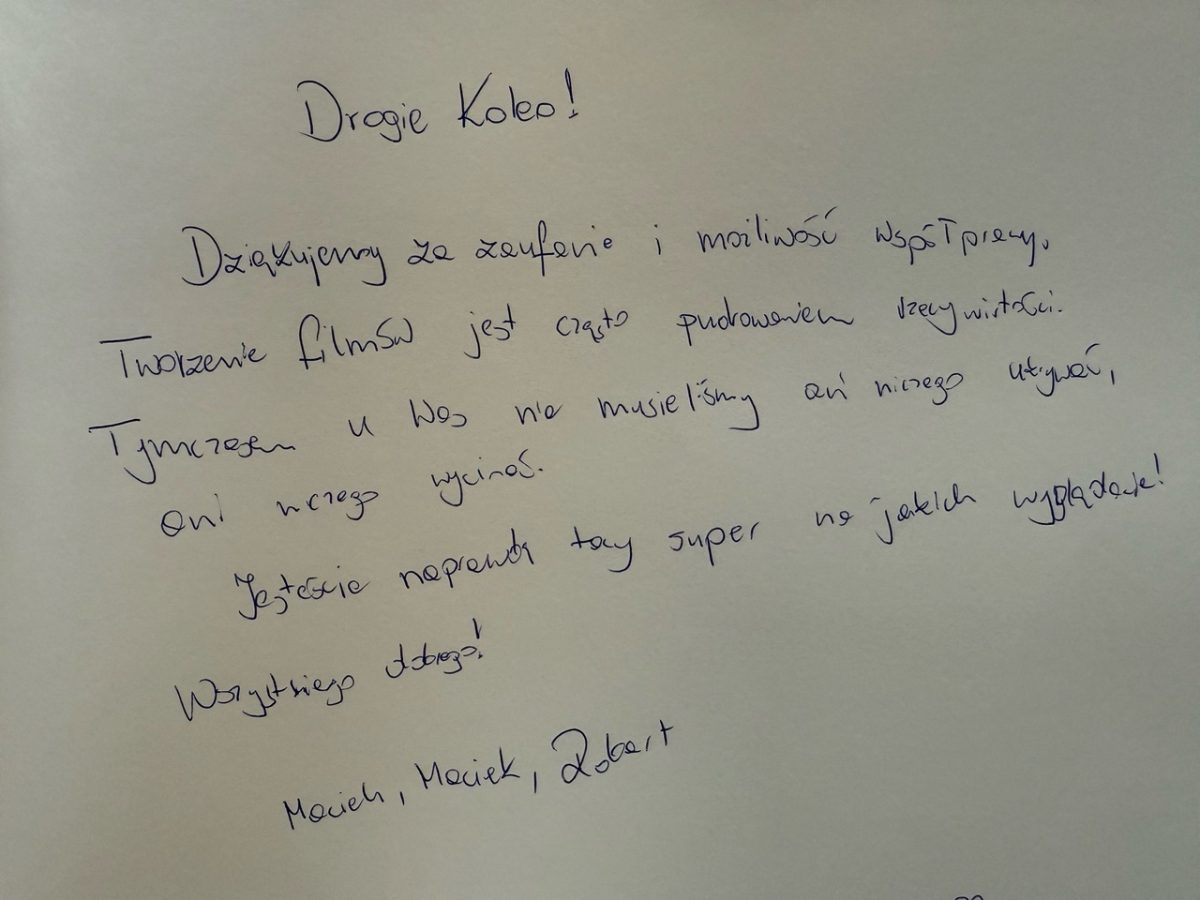 Drogie Koleo!
Dziękujemy za zaufanie i możliwość współpracy.
Tworzenie filmów jest często pudrowaniem rzeczywistości.
Tymczasem u Was nie musieliśmy ani niczego używać,
ani niczego wycinać.
Jesteście naprawdę tacy super na jakich wyglądacie!
Wszystkiego dobrego!
Maciek, Maciek, Robert